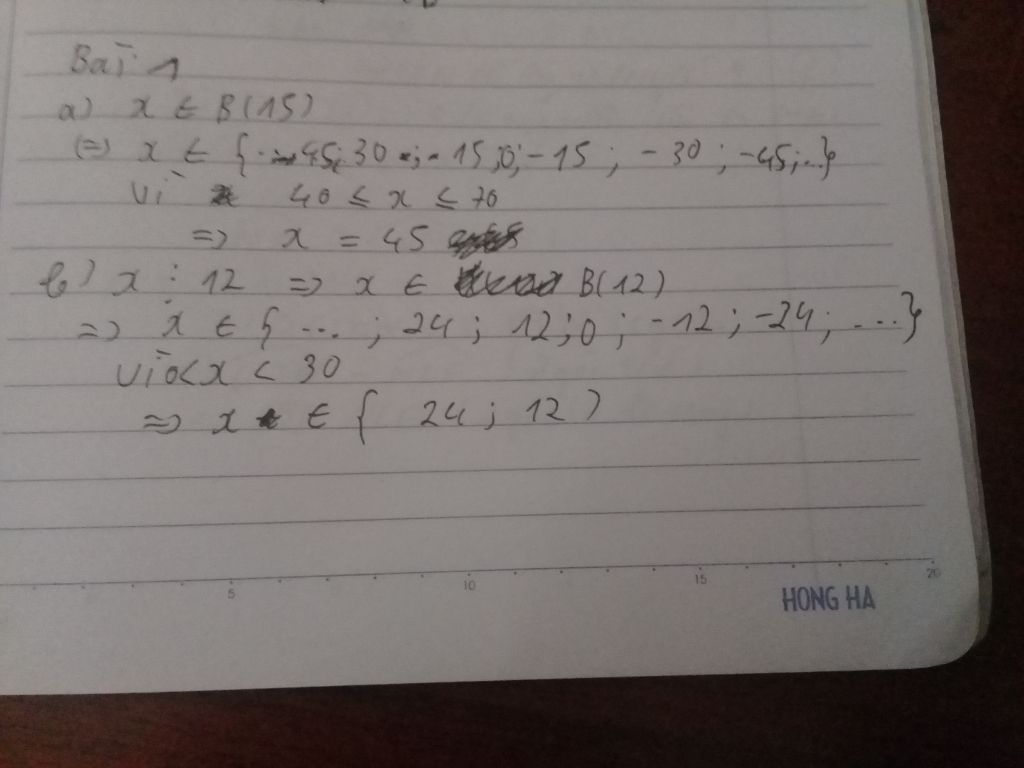 Bài 1
a) x ∈ B(15)
(=) x ∈ { ... 45; 30 ; 15; 0; -15 ; -30 ; -45; ..}
Vì 40 ≤ x ≤ 70
=> x = 45
b) x ⋮ 12 => x ∈ B(12)
=> x ∈ { ... ; 24 ; 12 ; 0 ; -12 ; -24 ; ...}
Vì 0 < x < 30
=> x ∈ { 24 ; 12 )
5 10 15 20
HONG HA